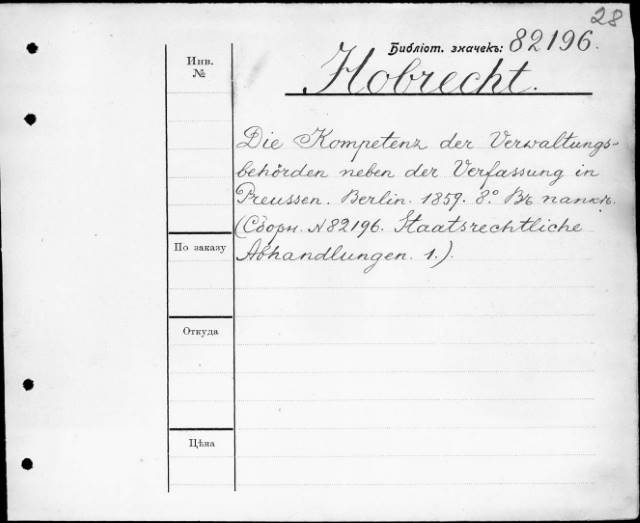 28
Библіот. значекъ: 82196.
Инв.
№
Hobrecht.
Die Kompetenz der Verwaltungs-
behörden neben der Verfassung in
Preussen. Berlin. 1859. 8°. Въ папкѣ.
(Сборн. №82196. Staatsrechtliche
Abhandlungen. 1.).
По заказу
Откуда
Цѣна